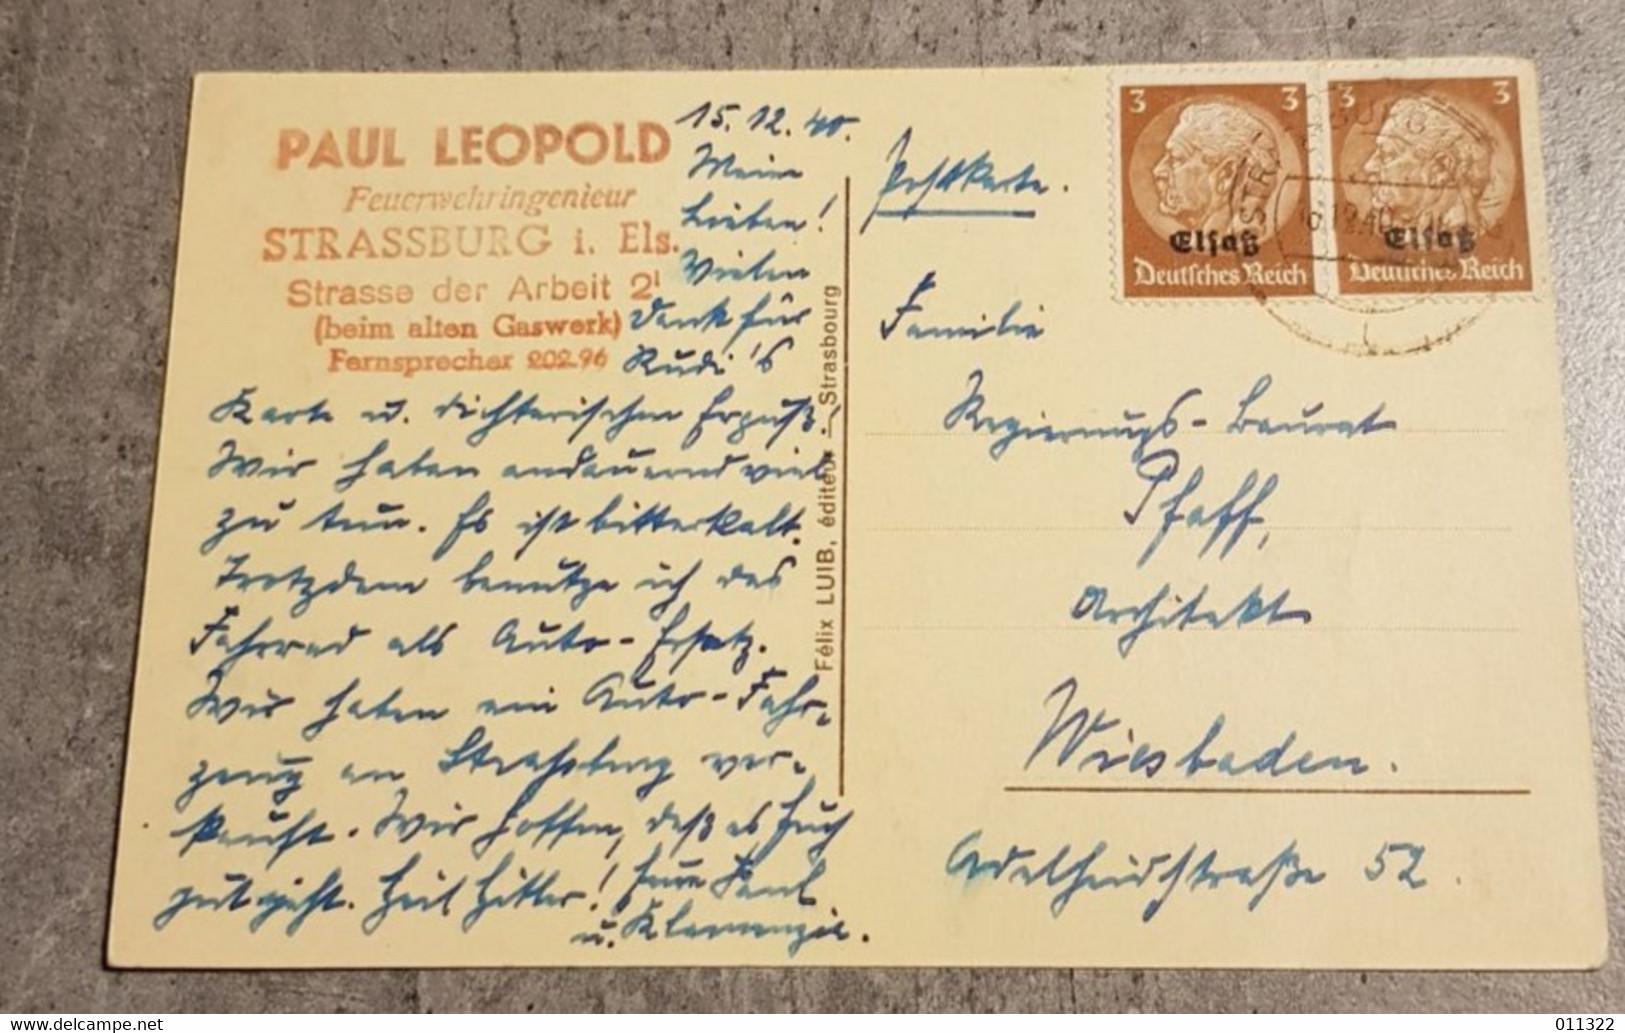 PAUL LEOPOLD
Feuerwehringenieur
STRASSBURG i. Els.
Strasse der Arbeit 2I
(beim alten Gaswerk)
Fernsprecher 202.96
15.12.40.
Meine
Lieben!
Vielen
Dank für
Rudi's
Karte u. dichterischen Erguß.
Wir haben andauernd viel
zu tun. Es ist bitterkalt.
Trotzdem benutze ich das
Fahrrad als Auto-Ersatz.
Wir haben ein Auto-Fahr-
zeug an Straßburg ver-
kauft. Wir hoffen, daß es Euch
gut geht. Heil Hitler! Eure Paul
u. Klemenzia.
Félix LUIB, éditeur — Strasbourg
Postkarte.
3 3
Elsaß
Deutsches Reich
3 3
Elsaß
Deutsches Reich
STRASSBURG
12.40
Familie
Regierungs-Baurat
Pfaff,
Architekt
Wiesbaden.
Adelheidstraße 52.
011322